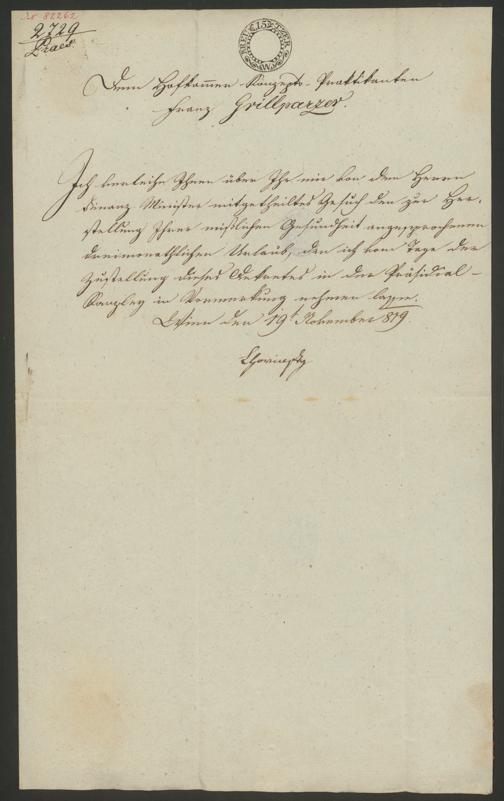 Nr 82262
2729
Praes
15
Dem Hofkammer Konzepts-Praktikanten
Franz Grillparzer.
Ich verleihe Ihnen über Ihr mir von dem Herrn
Finanz Minister mitgetheiltes Gesuch den zur Her-
stellung Ihrer mißlichen Gesundheit angesprochenen
dreimonathlichen Urlaub, den ich vom Tage der
Zustellung dieses Dekretes in der Präsidial-
Kanzley in Vormerkung nehmen lasse.
Wien den 19t November 819.
Chorinsky